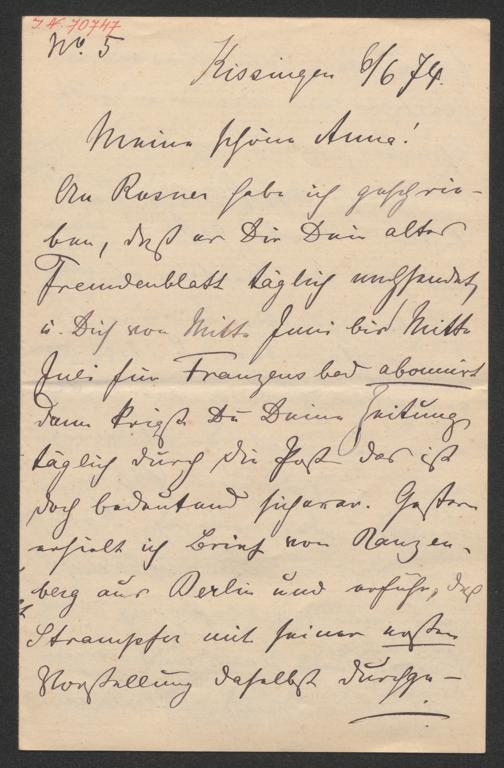 I.N. 70747
No. 5
Kissingen 6/6 74.
Meine schöne Anna!
An Rosner habe ich geschrie-
ben, daß er Dir Dein altes
Fremdenblatt täglich nachsendet,
u. Dich von Mitte Juni bis Mitte
Juli für Franzensbad abonnirt
dann krigst Du Deine Zeitung
täglich durch die Post das ist
doch bedeutend sicherer. Gestern
erhielt ich Brief von Ranzen-
berg aus Berlin und erfuhr, daß
Strampfer mit seiner ersten
Vorstellung daselbst durchge-